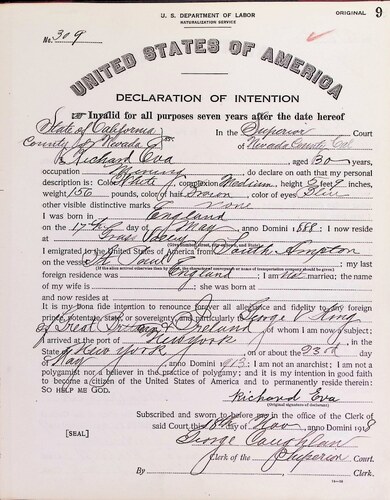 U. S. DEPARTMENT OF LABOR
NATURALIZATION SERVICE
ORIGINAL 9
No. 309
UNITED STATES OF AMERICA
DECLARATION OF INTENTION
Invalid for all purposes seven years after the date hereof
State of California
In the Superior Court
County of Nevada
of Nevada County Cal
I, Richard Eva aged 30 years,
occupation Mining, do declare on oath that my personal
description is: Color White, complexion Medium, height 5 feet 9 inches,
weight 156 pounds, color of hair Brown, color of eyes Blue
other visible distinctive marks None
I was born in England
on the 17th day of May, anno Domini 1888; I now reside
at Grass Valley
I emigrated to the United States of America from South Ampton
on the vessel St Louis; my last
foreign residence was England; I am not married; the name
of my wife is; she was born at
and now resides at
It is my bona fide intention to renounce forever all allegiance and fidelity to any foreign
prince, potentate, state, or sovereignty, and particularly to George V King
of Great Britain & Ireland, of whom I am now a subject;
I arrived at the port of New York, in the
State of New York, on or about the 23rd day
of May, anno Domini 1913; I am not an anarchist; I am not a
polygamist nor a believer in the practice of polygamy; and it is my intention in good faith
to become a citizen of the United States of America and to permanently reside therein:
SO HELP ME GOD.
Richard Eva
(Original signature of declarant)
Subscribed and sworn to before me in the office of the Clerk of
[SEAL]
said Court this 18th day of Nov, anno Domini 1918
George Coughlan
Clerk of the Superior Court.
By, Clerk.